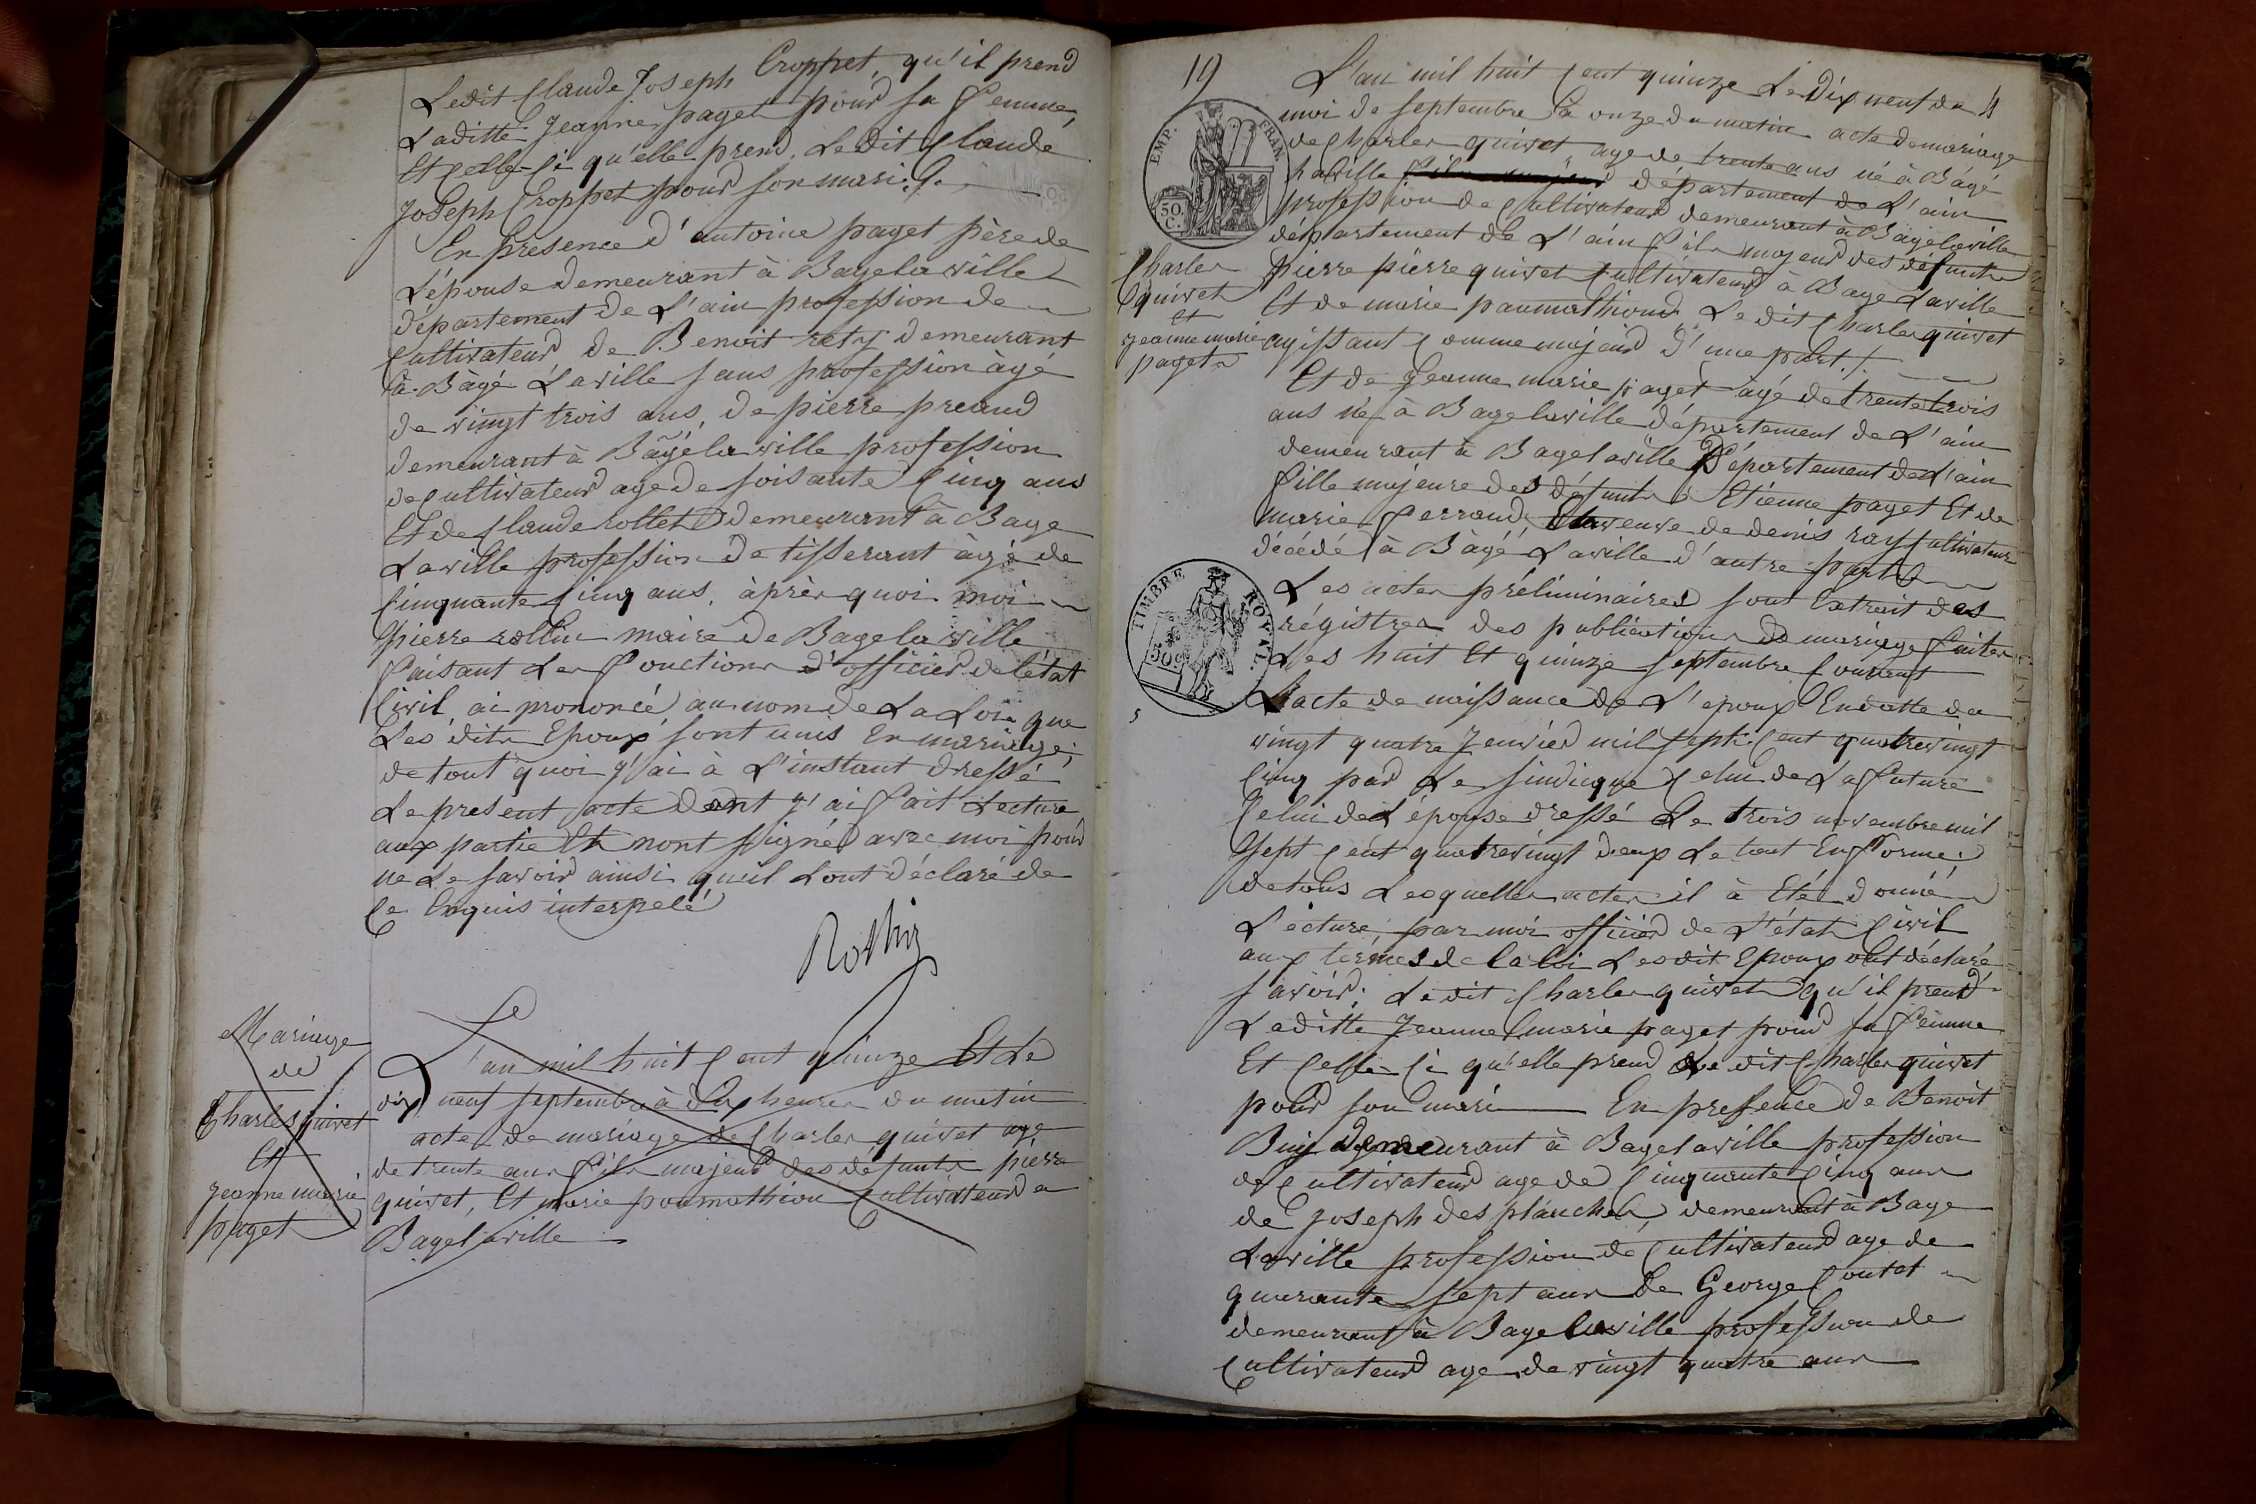 Ledit Claude Joseph Croppet, qu'il prend
Laditte Jeanne paget pour sa femme,
Et Celle-Ci qu'elle prend Ledit Claude
Joseph Croppet pour son mari.
En presence d'antoine paget père de
L'épouse demeurant à Bagelaville
département de L'ain profession de
Cultivateur de Benoit rety demeurant
à Bâgé Laville sans profession âgé
de vingt trois ans, de pierre preaud
demeurant à Bâgélaville profession
de Cultivateur age de soisante Cinq ans
Et de Claude rollet demeurant à Bage
Laville profession de tisserant âgé de
Cinquante Cinq ans, àprèr quoi moi
pierre rollin maire de Bagelaville
faisant Les fonctions d'officier de l'état
Civil ai prononcé au nom de La Loi que
Les dits Epoux sont unis En mariage;
de tout quoi j'ai à L'instant dressé
Le present acte dont j'ai fait Lecture
aux partie Et nont signé avec moi pour
ne Le savoir ainsi quil Lont déclaré de
Ce Enquis interpelé
Rollin
Mariage
de
Charles quivet
Et
Jeanne marie
paget
Le
L'an mil huit Cent quinze Et Le
dix neuf septembre à dix heures du matin
acte de mariage de Charles quivet age
de trente ans fils majeur des défunts pierre
quivet, Et marie poumathiou Cultivateurs a
Bagelaville
19
L'an mil huit Cent quinze Le Dix neuf du
moi de septembre à onze du matin acte de mariage
de Charles quivet age de trente ans né à Bâgé
Laville département de L'ain
profession de Cultivateur demeurant à Bagelaville
département de L'ain fils majeur des défunts
pierre pierre quivet Cultivateur à Bage Laville
Et de marie paumathioud Le dit Charles quivet
agissant Comme majeur d'une part
EMP. FRAN.
50. C.
Charles
quivet
Et
jeanne marie
paget
Et de Jeanne marie paget âgé de trente trois
ans né à Bagelaville département de L'ain
demeurant à Bagelaville Département de L'ain
fille majeure des défunts Etienne paget Et de
marie ferraud, Et veuve de denis ray Cultivateur
décédé à Bâgé Laville d'autre part
TIMBRE ROYAL
50c
Les actes préliminaires sont Extrait des
régistres des publications de mariage faites
Les huit Et quinze septembre Courrant
L'acte de naissance de L'epoux En datte du
vingt quatre Jenvier mil sept Cent quatrevingt
Cinq par Le sindicque Celui de La future
Celui de L'épouse dressé Le trois novembre mil
sept Cent quatrevingt deux Le tout En forme;
de tous Lesquelles actes il à Eté donné
Lecture par moi officier de L'état Civil
aux termes de la loi Lesdit Epoux ont déclaré
savoir: Ledit Charles quivet qu'il prend
Laditte Jeanne marie paget pour sa femme
Et Celle-Ci qu'elle prend Le dit Charles quivet
pour son mari En presence de Benoit
Buij demeurant à Bagelaville profession
de Cultivateur age de Cinquante Cinq ans
de Joseph des planches demeurant à Bage
Laville profession de Cultivateur age de
quarante sept ans de George Coutet
demeurant à Bagelaville profession de
Cultivateur age de vingt quatre ans